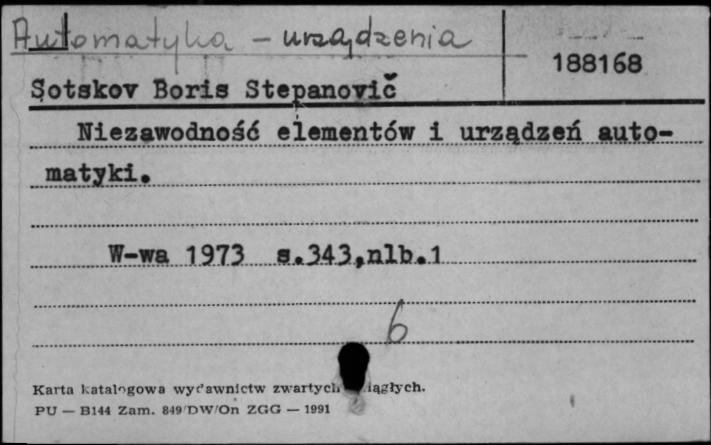 Automatyka – urządzenia
188168
Sotskov Boris Stepanovič
Niezawodność elementów i urządzeń auto-
matyki.
W-wa 1973 s.343,nlb.1
6
Karta katalogowa wydawnictw zwartych ciągłych.
PU — B144 Zam. 849/DW/On ZGG — 1991